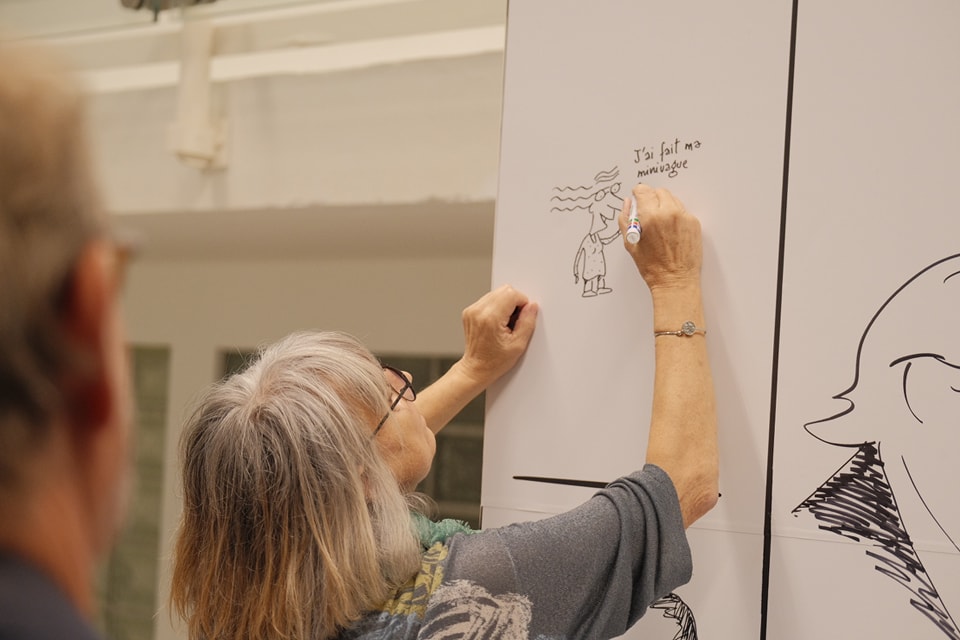 J'ai fait ma
minivague